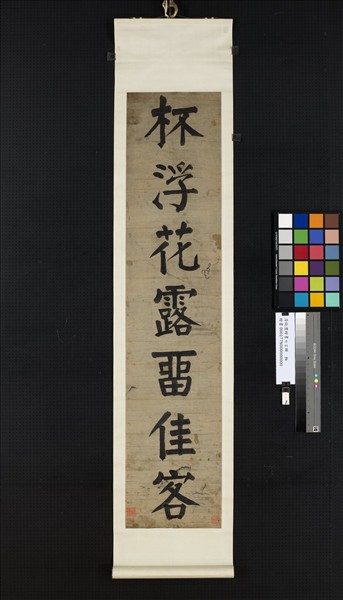 杯浮花露畱佳客